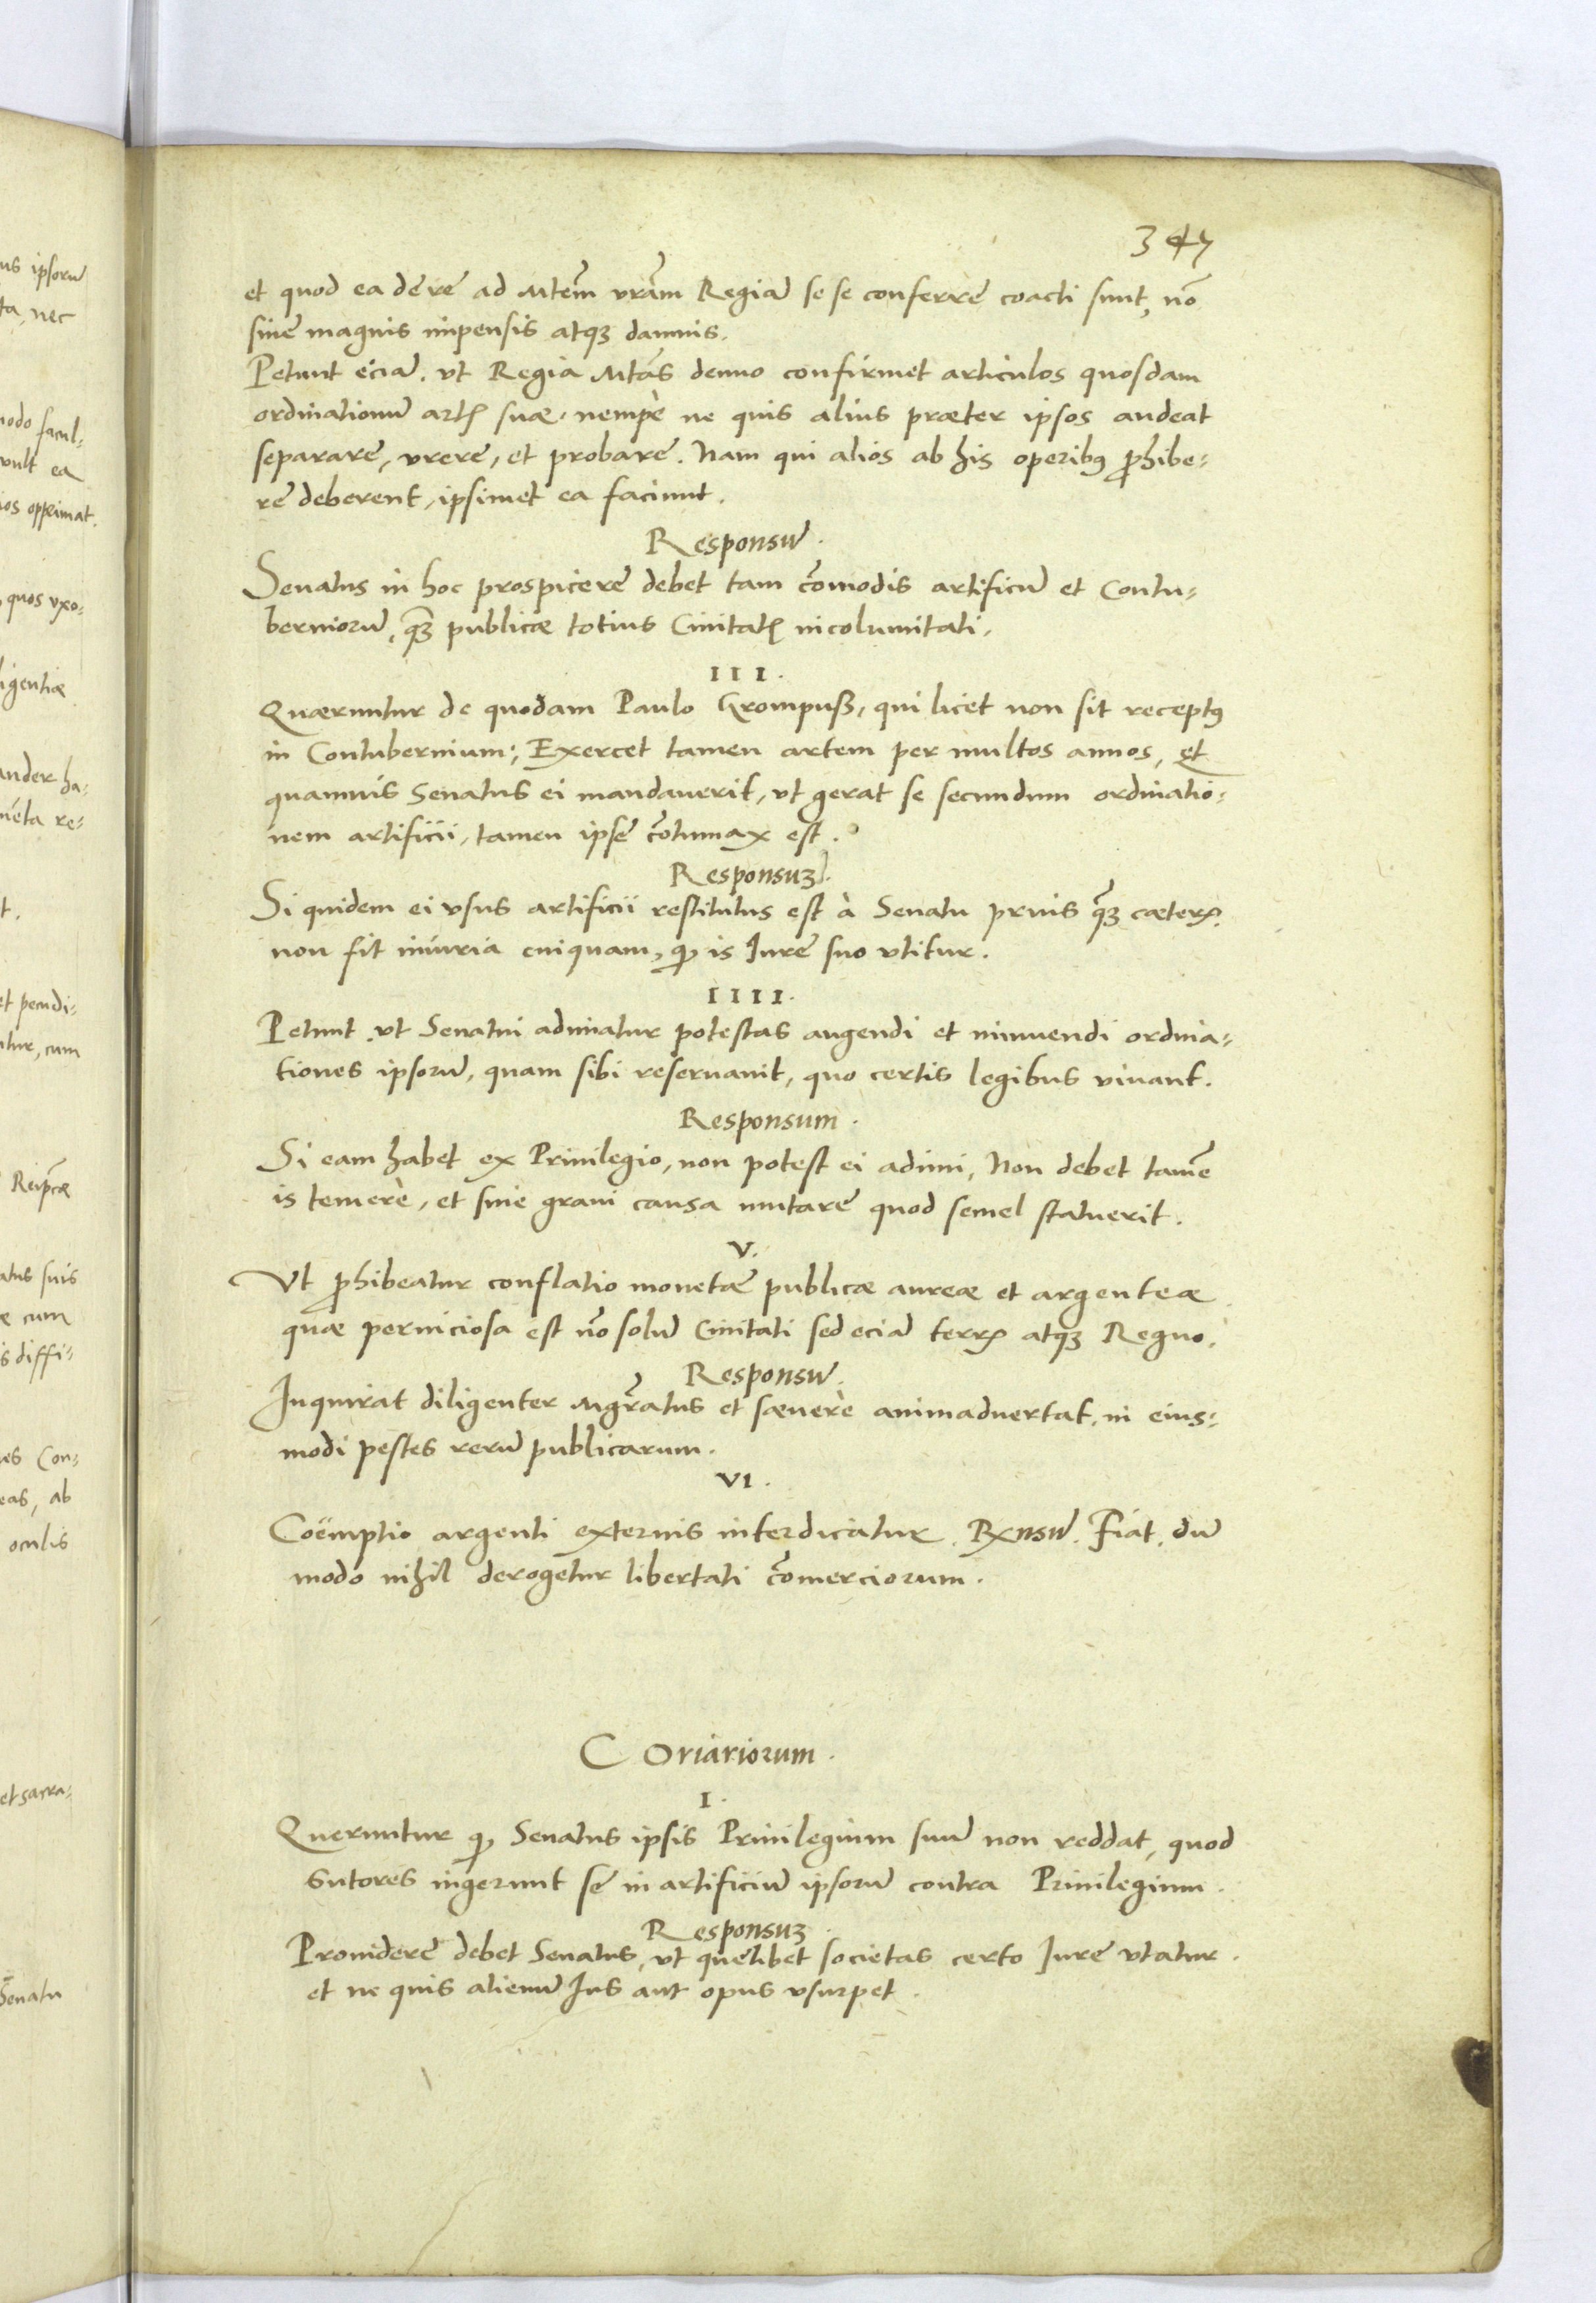 347
et quod ea de re ad Mtem vram Regiã se se conferre coacti sunt, nõ
sine magnis impensis atqꝫ damnis.
Petunt eciã. vt Regia Mtas denuo confirmet articulos quosdam
ordinationũ artꝭ suæ. nempè ne quis alius præter ipsos audeat
separare, vrere, et probare. Nam qui alios ab his operibꝰ ꝓhibe-
re deberent, ipsimet ea faciunt.
Responsũ.
Senatus in hoc prospicere debet tam cõmodis artificũ et Contu-
berniorũ, qꝫ publicæ totius Ciuitatꝭ incolumitati.
III.
Quæruntur de quodam Paulo Grompuß, qui licet non sit receptꝰ
in Contubernium; Exercet tamen artem per multos annos, et
quamuis Senatus ei mandauerit, vt gerat se secundum ordinatio-
nem artificii, tamen ipse cõtumax est.
Responsuꝫ.
Si quidem ei vsus artificii restitutus est à Senatu pruis qꝫ cæterꝭ.
non fit iniuria cuiquam, ꝙ is Iure suo vtitur.
IIII.
Petunt. vt Senatui adimatur potestas augendi et minuendi ordina-
tiones ipsorũ, quam sibi reseruauit, quo certis legibus viuant.
Responsum.
Si eam habet ex Priuilegio, non potest ei adimi, Non debet tamẽ
is temerè, et sine graui causa mutare quod semel statuerit.
V.
Vt ꝓhibeatur conflatio monetæ publicæ aureæ et argenteæ
quæ perniciosa est nõ solũ Ciuitati sed eciã terrꝭ atqꝫ Regno.
Responsũ.
Inquirat diligenter Mgratus et sæuerè animaduertat. in eius-
modi pestes rerũ publicarum.
VI.
Coëmptio argenti externis interdicatur. Rxnsũ. Fiat. dũ
modo nihil derogetur libertati cõmerciorum.
Coriariorum.
I.
Queruntur ꝙ Senatus ipsis Priuilegium suũ non reddat, quod
Sutores ingerunt se in artificiũ ipsorũ contra Priuilegium.
Responsuꝫ.
Prouidere debet Senatus, vt quelibet societas certo Iure vtatur.
et ne quis alienũ Ius aut opus vsurpet.